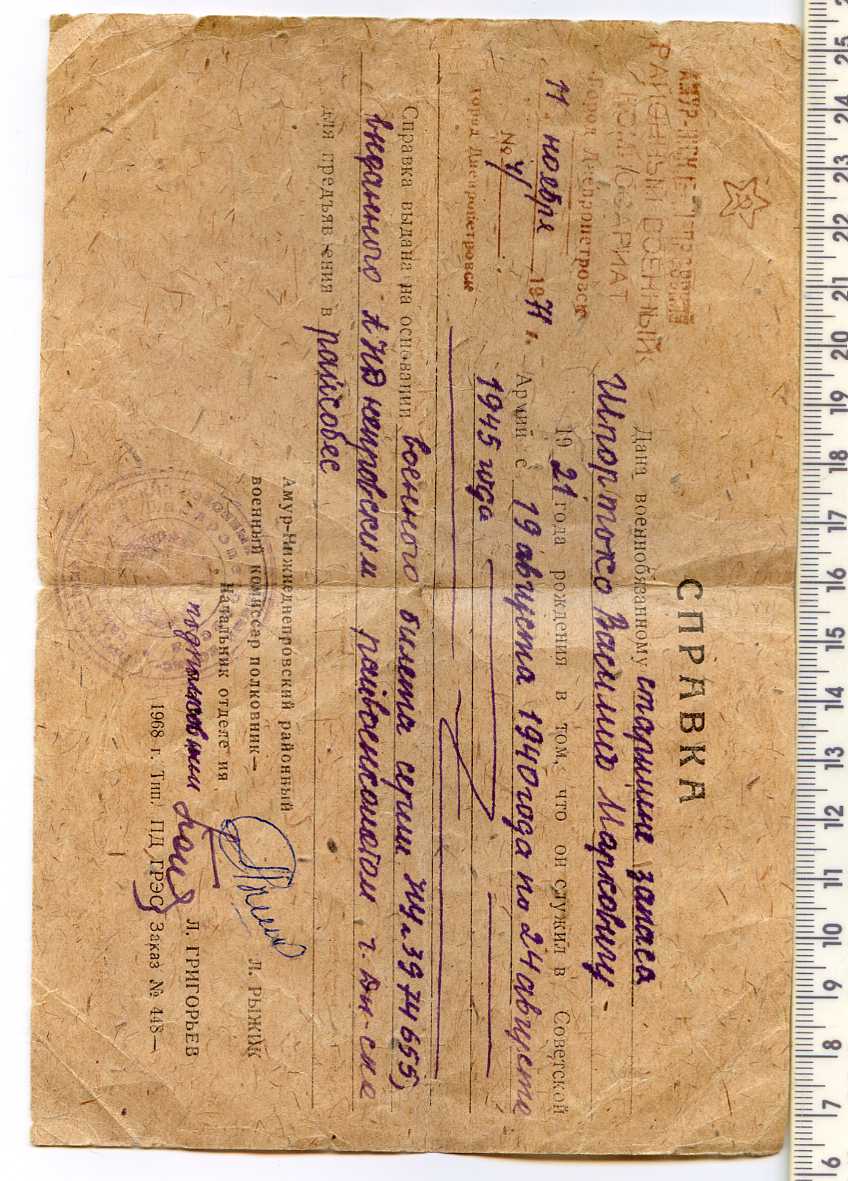 РАЙОННЫЙ ВОЕННЫЙ
КОМИССАРИАТ
город Днепропетровск
11 ноября 1971 г.
№ 4/
город Днепропетровск
СПРАВКА
Дана военнообязанному старшине запаса
Шпортько Василию Марковичу -
1921 года рождения в том, что он служил в Советской
Армии с 19 августа 1940 года по 24 августа
1945 года
Справка выдана на основании военного билета серии НУ № 3974655,
выданного АНДнепровским райвоенкоматом г. Дн-ска
для предъявления в райсобес
Амур-Нижнеднепровский районный
военный комиссар полковник— Л. РЫЖИК
Начальник отделения
подполковник Л. ГРИГОРЬЕВ
1968 г. Тип. ПД ГРЭС Заказ № 448—
6 7 8 9 10 11 12 13 14 15 16 17 18 19 20 21 22 23 24 25